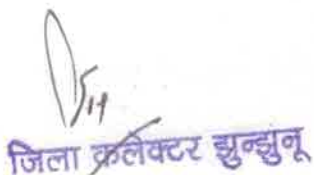 जिला कलेक्टर झुन्झुनू